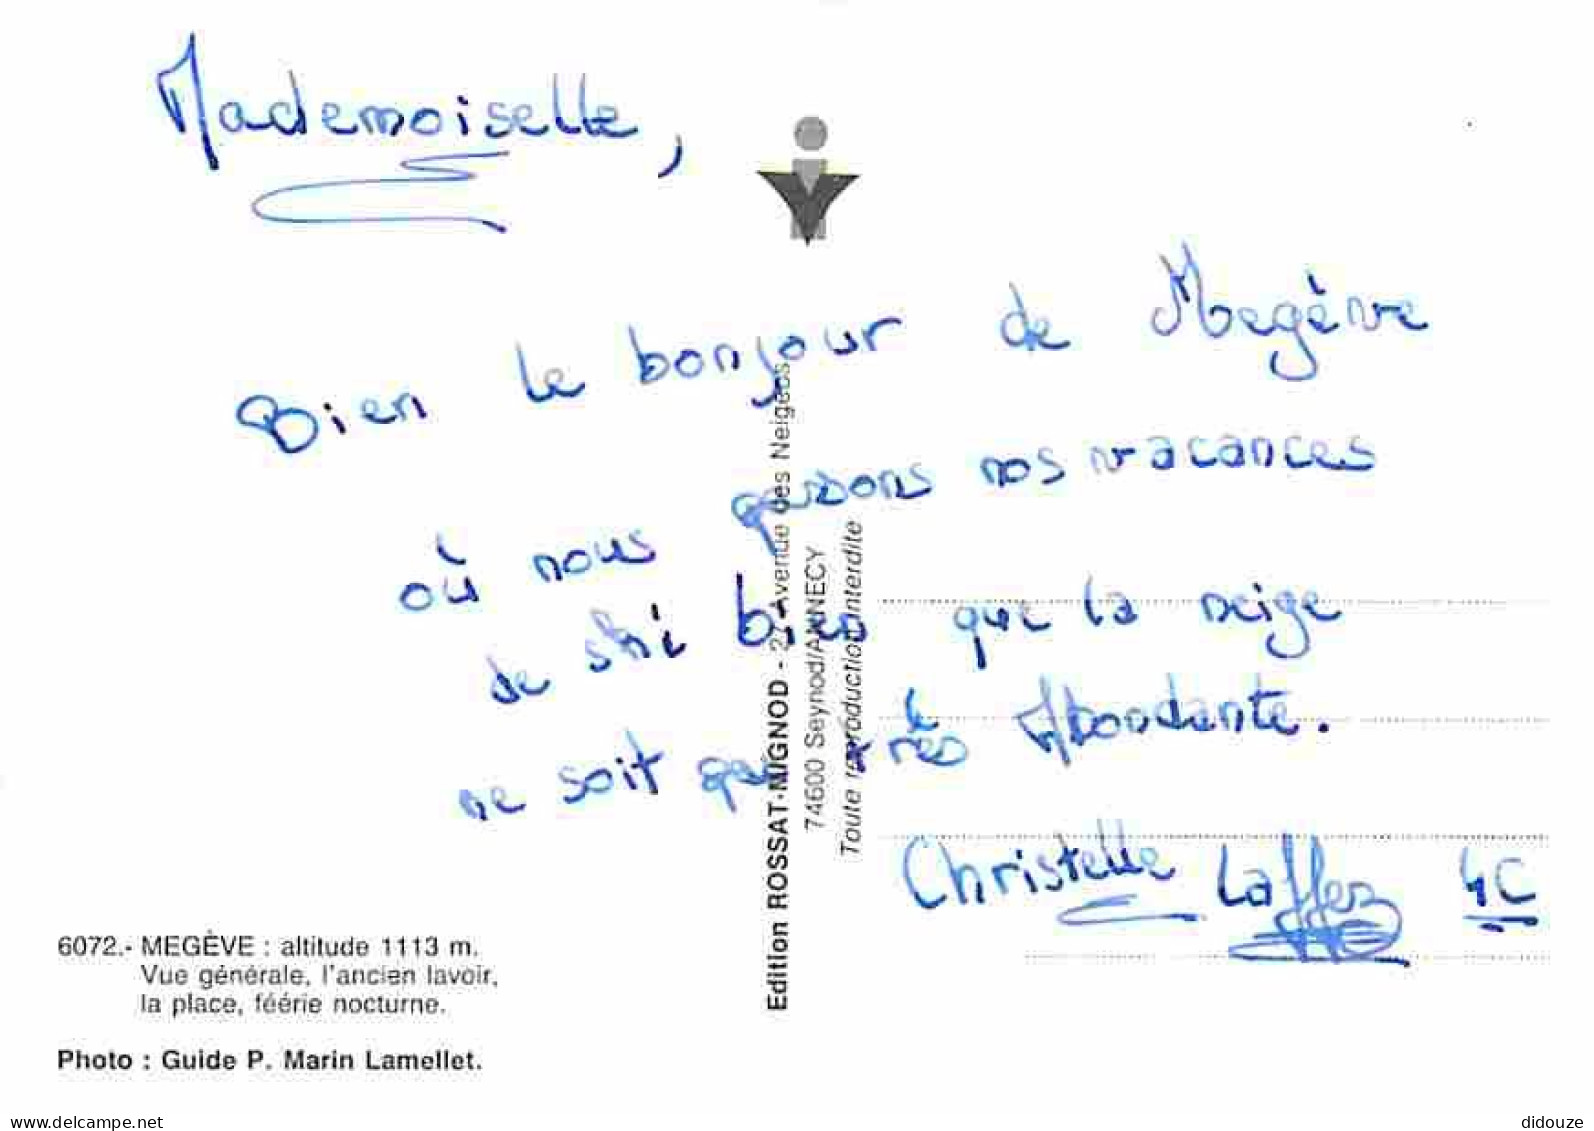 Mademoiselle,
Bien le bonjour de Megève
où nous passons nos vacances
de ski bien que la neige
ne soit pas très Abondante.
Christelle Laffez 4C
6072.- MEGÈVE : altitude 1113 m.
Vue générale, l'ancien lavoir,
la place, féérie nocturne.
Photo : Guide P. Marin Lamellet.
Edition ROSSAT-MIGNOD - Avenue des Neigeos
74600 Seynod/ANNECY
Toute reproduction interdite
www.delcampe.net
didouze